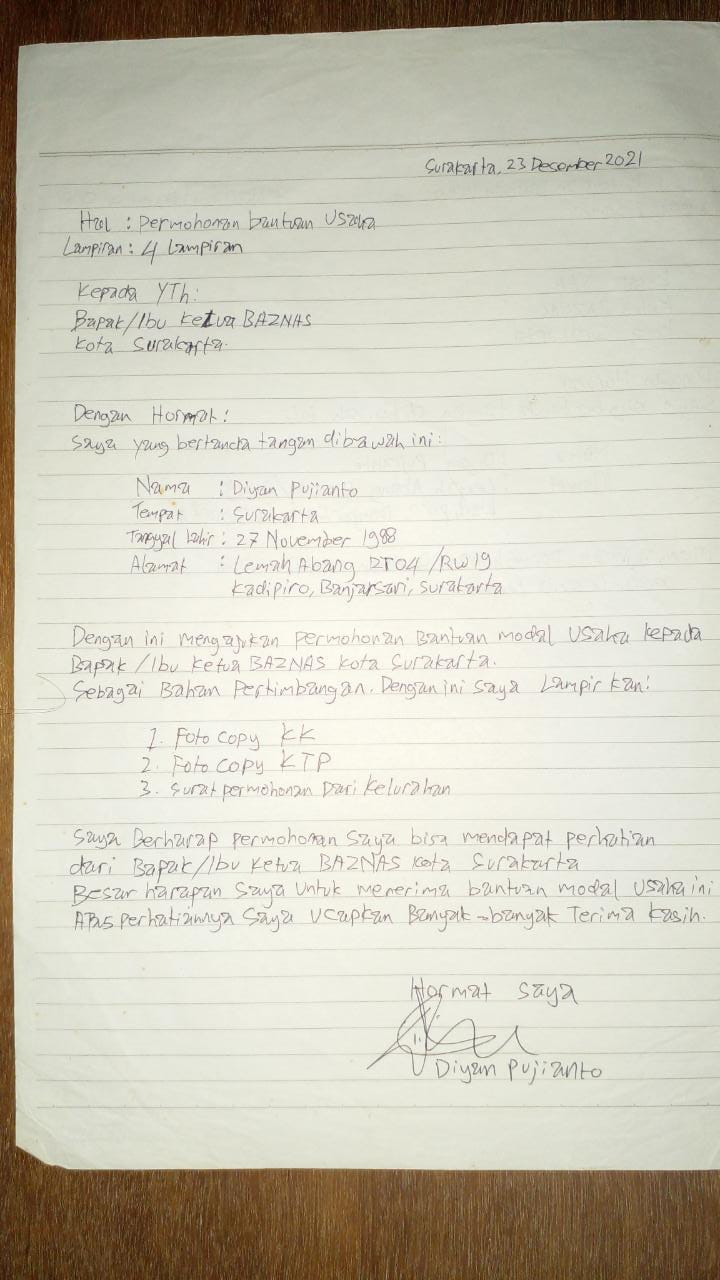 Surakarta, 23 Desember 2021
Hal : Permohonan bantuan Usaha
Lampiran : 4 Lampiran
Kepada YTh:
Bapak/Ibu Ketua BAZNAS
Kota Surakarta.
Dengan Hormat :
Saya yang bertanda tangan dibawah ini :
Nama : Diyan Pujianto
Tempat : Surakarta
Tanggal Lahir : 27 November 1988
Alamat : Lemah Abang RT04 /RW19
Kadipiro, Banjarsari, Surakarta
Dengan ini mengajukan permohonan Bantuan modal Usaha kepada
Bapak /Ibu Ketua BAZNAS Kota Surakarta.
Sebagai Bahan Pertimbangan. Dengan ini saya Lampirkan:
1. Foto Copy KK
2. Foto Copy KTP
3. Surat permohonan Dari Kelurahan
Saya Berharap permohonan saya bisa mendapat perhatian
dari Bapak/Ibu Ketua BAZNAS Kota Surakarta
Besar harapan Saya Untuk menerima bantuan modal Usaha ini
Atas perhatiannya Saya Ucapkan Banyak-banyak Terima kasih.
Hormat saya
Diyan Pujianto